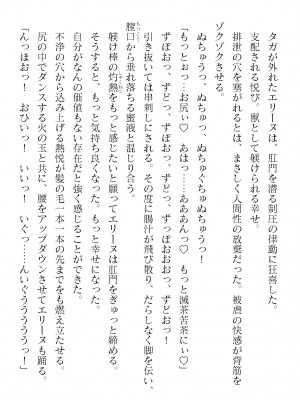 タガが外れたエリーヌは、肛門を潜る制圧の律動に狂喜した。
支配される悦び。獣として躾けられる幸せ。
排泄の穴を塞がれるとは、まさしく人間性の放棄だった。被虐の快感が背筋を
ゾクゾクさせる。
ぬちゅうっ、ぬちゅぐちゅぬちゅうっ！
「もっとぉっ…お尻ぃ♡　あはっ…ああんっ♡　もっと滅茶苦茶にぃ♡」
ずぼおっ、ずどっ、ずぼおおっ、ずっぼおおおっ、ずどおっ！
引き抜いては串刺しにされる。その度に腸汁が飛び散り、だらしなく脚を伝い、
膣口から垂れ落ちる蜜液と混じり合う。
躾け棒の灼熱をもっと感じたいと願ってエリーヌは肛門をぎゅっと締める。
そうすると、もっと気持ち良くなった。もっと幸せになった。
自分がなんの価値もない存在だと強く感じることができた。
不浄の穴から込み上げる熱悦が髪の毛一本一本の先までも燃え立たせる。
尻の中でダンスする火の玉と共に、腰をアップダウンさせてエリーヌも踊る。
「んっほおっ！　おひぃっ！　いいっ！　いぐっ……んいぐううううっ！」